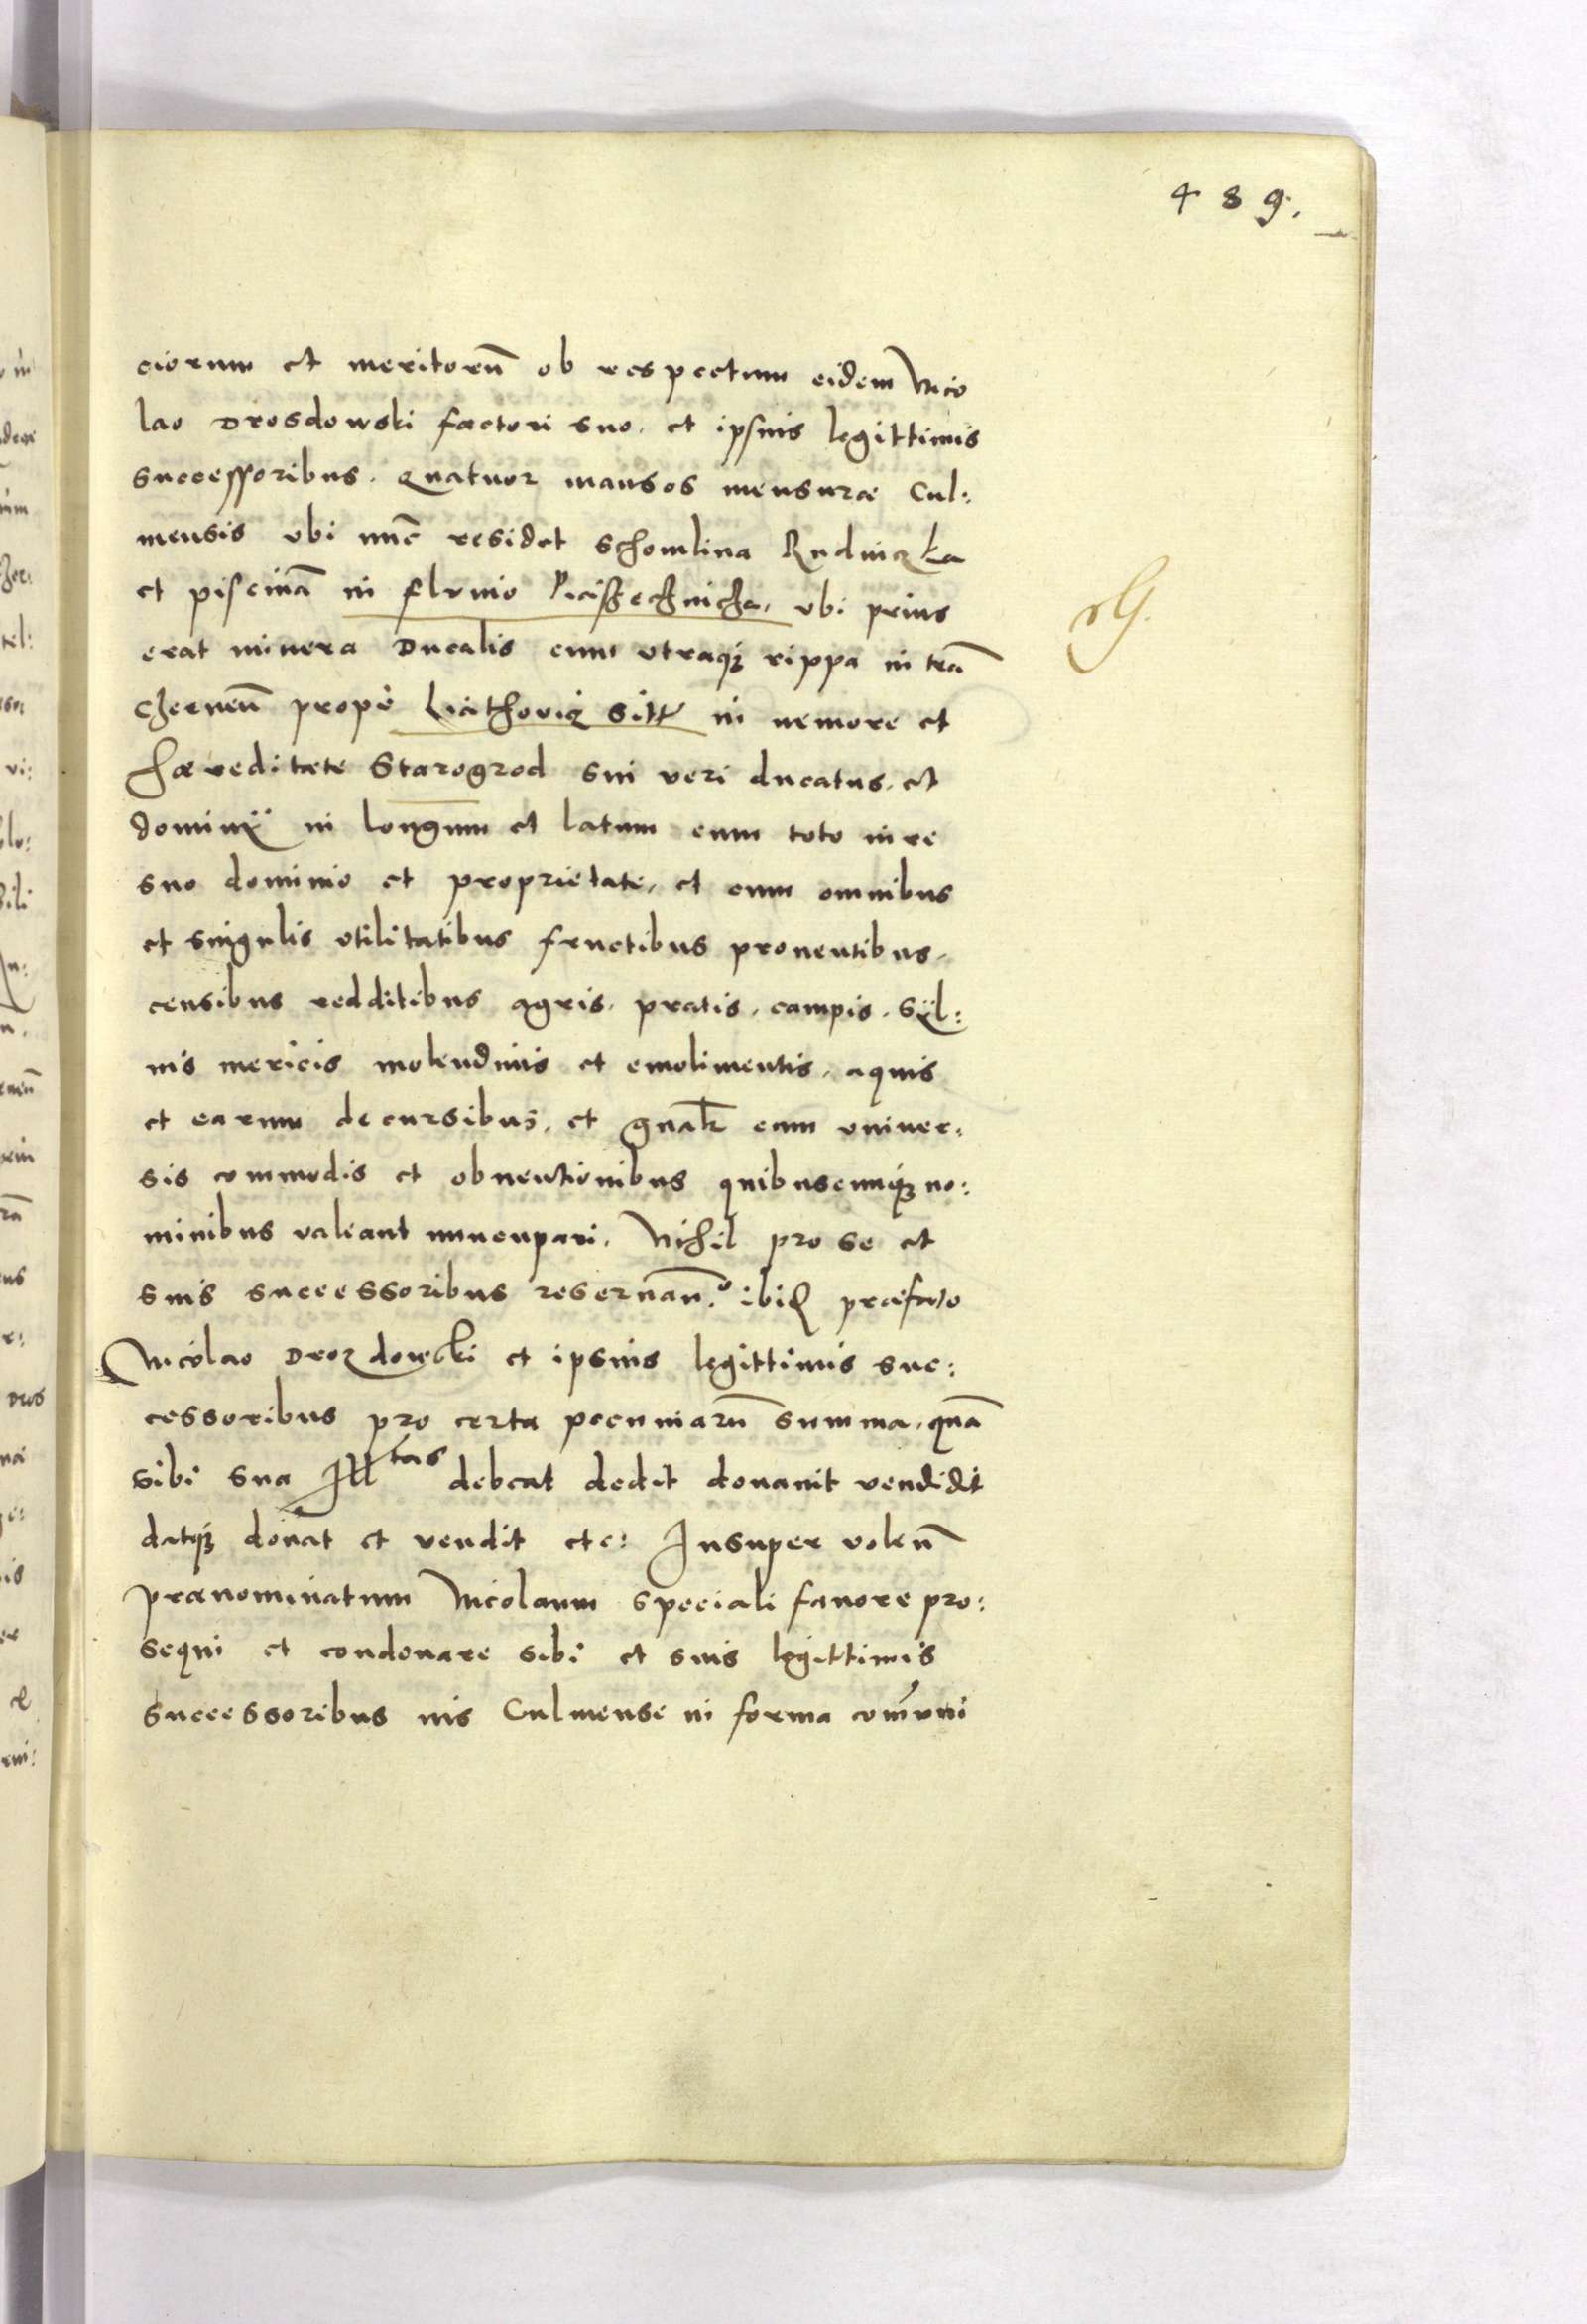 489.
ciorum et meritorū ob respectum eidem Nico
lao Drosdowski factori suo. et ipsius legittimis
successoribus. Quatuor mansos mensuræ Cul:
mensis vbi nūc residet Schomlina Rudnizka
et piscinā in fluuio vbi prius
erat minera Ducalis cum vtraqꝫ rippa in trā
Czernēn prope Liathoviz sitt in nemore et
hæreditate Starogrod sui veri ducatus. et
dominÿ in longum et latum cum toto iure
suo dominio et proprietate, et cum omnibus
et singulis vtilitatibus fructibus prouentibus.
censibus redditibus agris. pratis. campis. Sÿl:
uis mericis molendinis et emolimentis. aquis
et earum decursibus. et gnalr cum vniuer:
sis commodis et obuentionibus quibuscumqꝫ no:
minibus valeant nuncupari. Nihil pro se et
suis successoribus reseruan.º ibid præfato
Nicolao Drozdowski et ipsius legittimis suc:
cessoribus pro certa pecuniarū summa. quā
sibi sua Illtas debeat dedit donauit vendidit
datqꝫ donat et vendit etc: Insuper volen̄
prænominatum Nicolaum speciali fauore pro:
sequi et condonare sibi et suis legittimis
successoribus ius Culmense in forma com̄vni